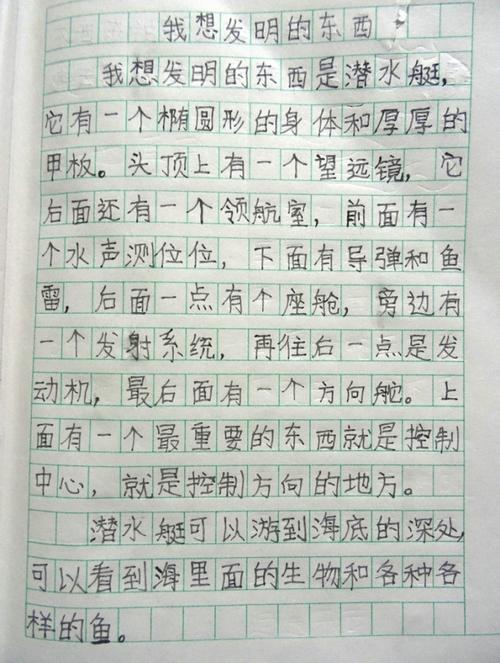 我想发明的东西
我想发明的东西是潜水艇，
它有一个椭圆形的身体和厚厚的
甲板。头顶上有一个望远镜，它
后面还有一个领航室，前面有一
个水声测位位，下面有导弹和鱼
雷，后面一点有个座舱，旁边有
一个发射系统，再往后一点是发
动机，最后面有一个方向舵。上
面有一个最重要的东西就是控制
中心，就是控制方向的地方。
潜水艇可以游到海底的深处，
可以看到海里面的生物和各种各
样的鱼。